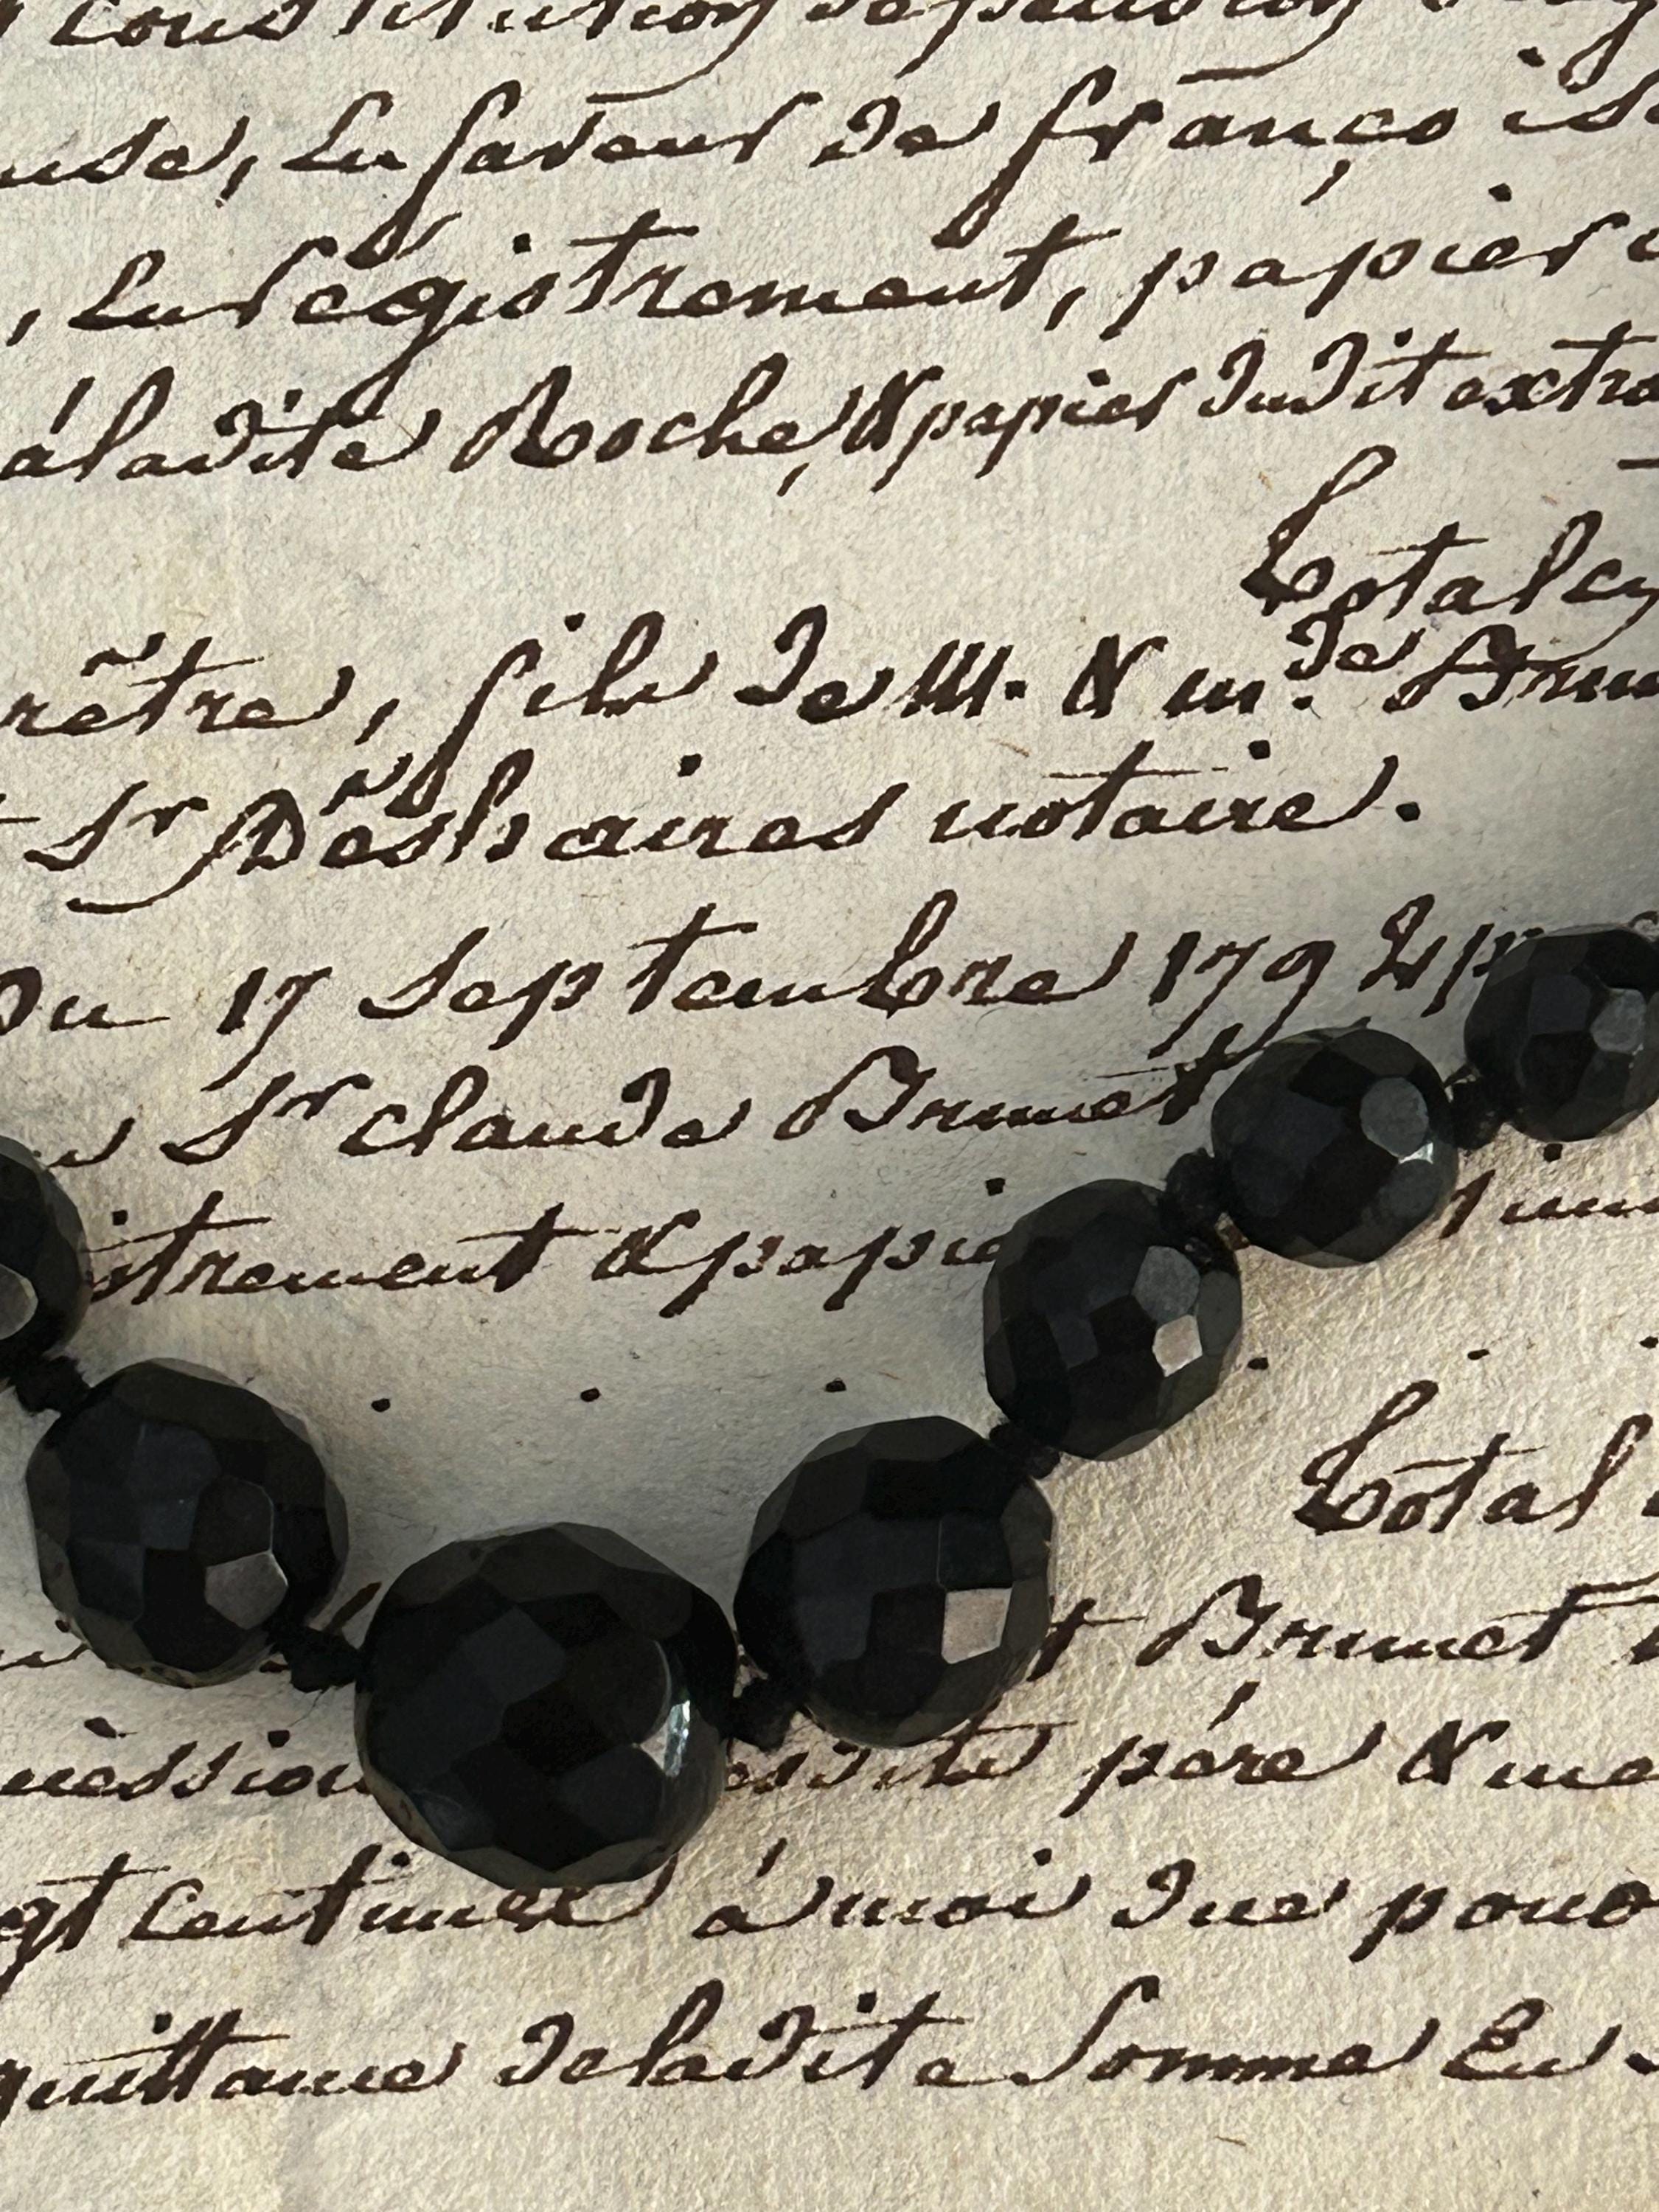 constitution de pension
use, en faveur de françois
, enregistrement, papier
à ladite Roche, & papier dudit extra
Total cy
rêtre, fils de M. & m.de Brun
Sr Deshaires notaire.
Du 17 Septembre 1792 p
Sr claude Brunet
istrement & papie
Total
t Brunet
esdits père & me
gt centimes à moi due pour
quittance de ladite Somme en